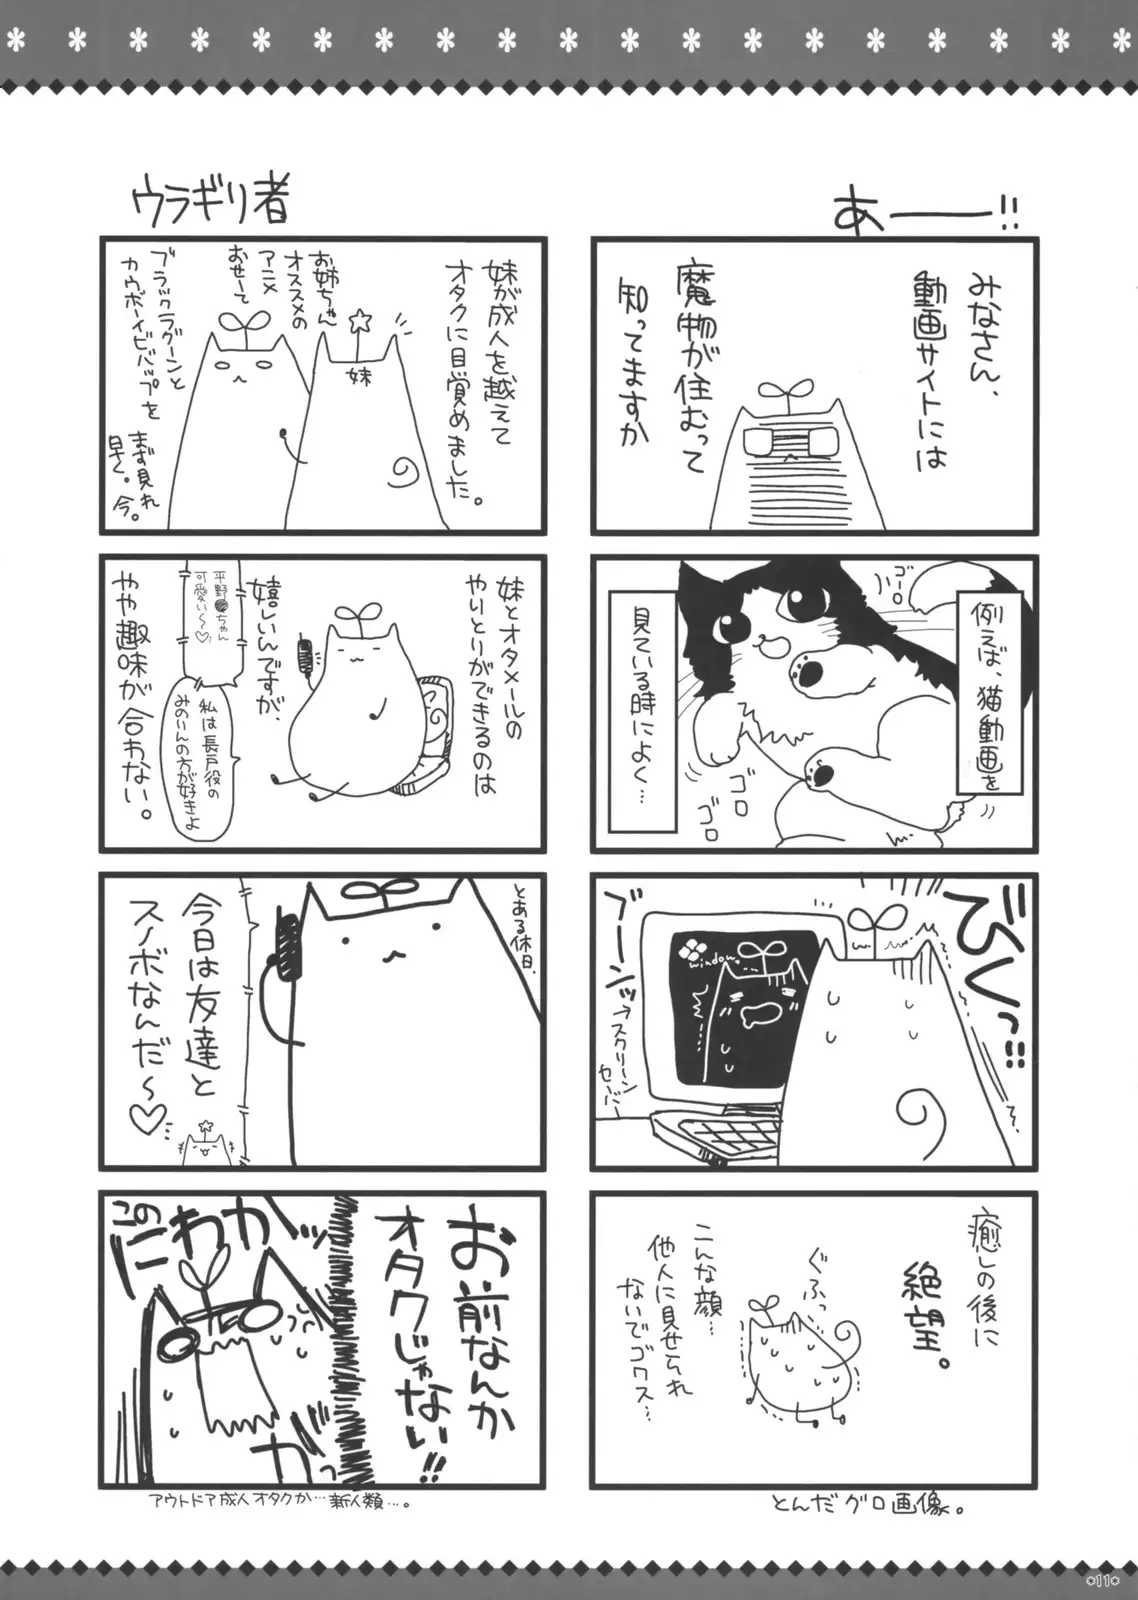 あ――!!
みなさん、
動画サイトには
魔物が住むって
知ってますか
例えば、猫動画を
見ている時によく…
ゴーロ
ゴロ
ゴロ
びくっ!!!
ブーンッ
→スクリーン
セーバー
window
癒しの後に
絶望。
ぐふっ
こんな顔…
他人に見せられ
ないでゴワス…
とんだグロ画像。
ウラギリ者
妹が成人を越えて
オタクに目覚めました。
お姉ちゃん
オススメの
アニメ
おせーて
妹
ブラックラグーンと
カウボーイビバップを
まず見れ
早く。今。
妹とオタメールの
やりとりができるのは
嬉しいんですが、
やや趣味が合わない。
平野●ちゃん
可愛い〜♡
私は長戸役の
みのりんの方が好きよ
とある休日、
今日は友達と
スノボなんだ〜♡
お前なんか
オタクじゃない!!
このにわかッ
カッ
アウトドア成人オタクか…新人類…。
*11*